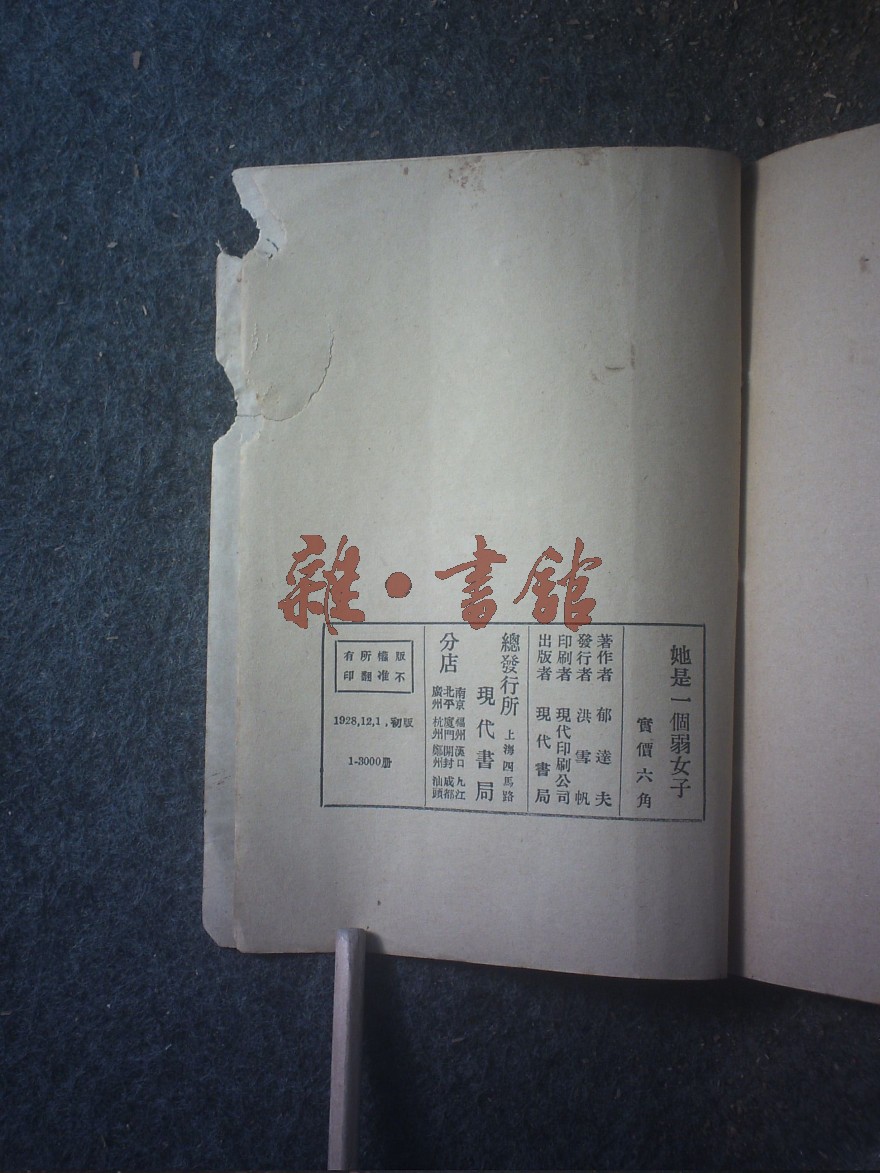 雜·書館
她是一個弱女子
實價六角
著作者 郁達夫
發行者 洪雪帆
印刷者 現代印刷公司
出版者 現代書局
總發行所 上海四馬路
現代書局
分店
南京 福州 漢口 九江
北平 廈門 開封 成都
廣州 杭州 鄭州 汕頭
版權所有
不准翻印
1928,12,1,初版
1-3000册